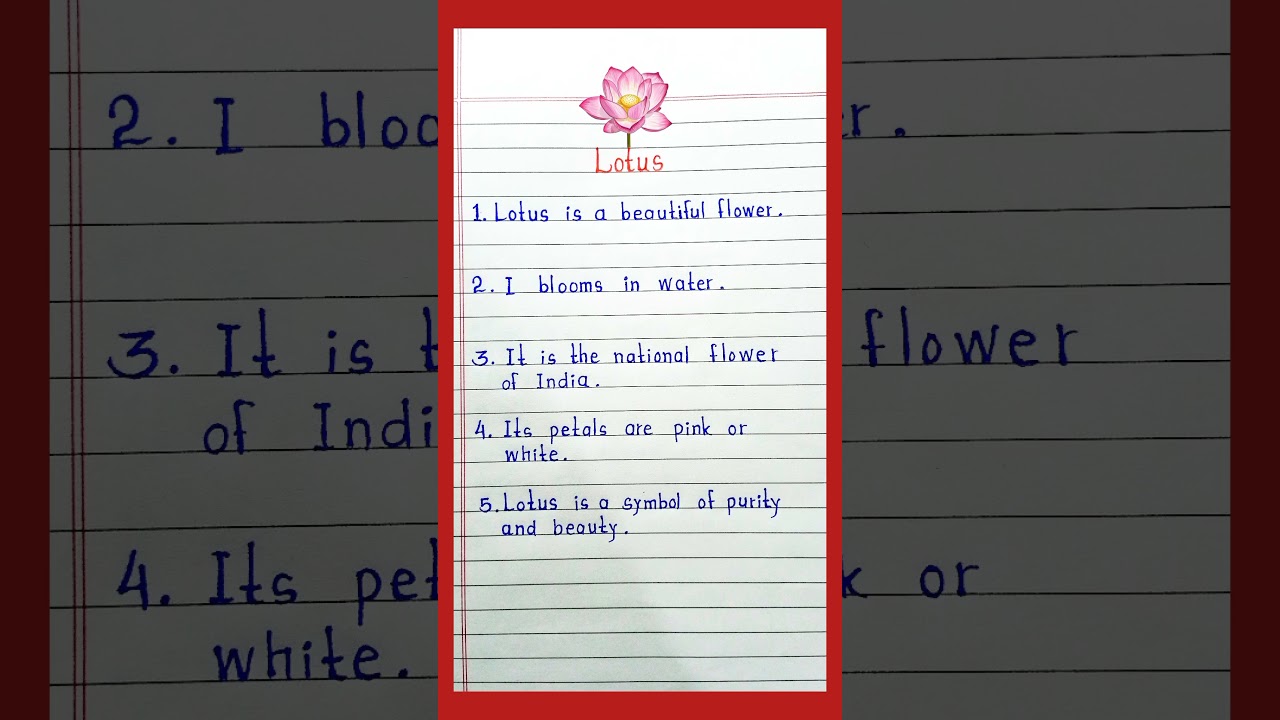 Lotus
1. Lotus is a beautiful flower.
2. I blooms in water.
3. It is the national flower
of India.
4. Its petals are pink or
white.
5. Lotus is a symbol of purity
and beauty.
2. I bloo
er.
3. It is t
flower
of Indi
4. Its pet
k or
white.